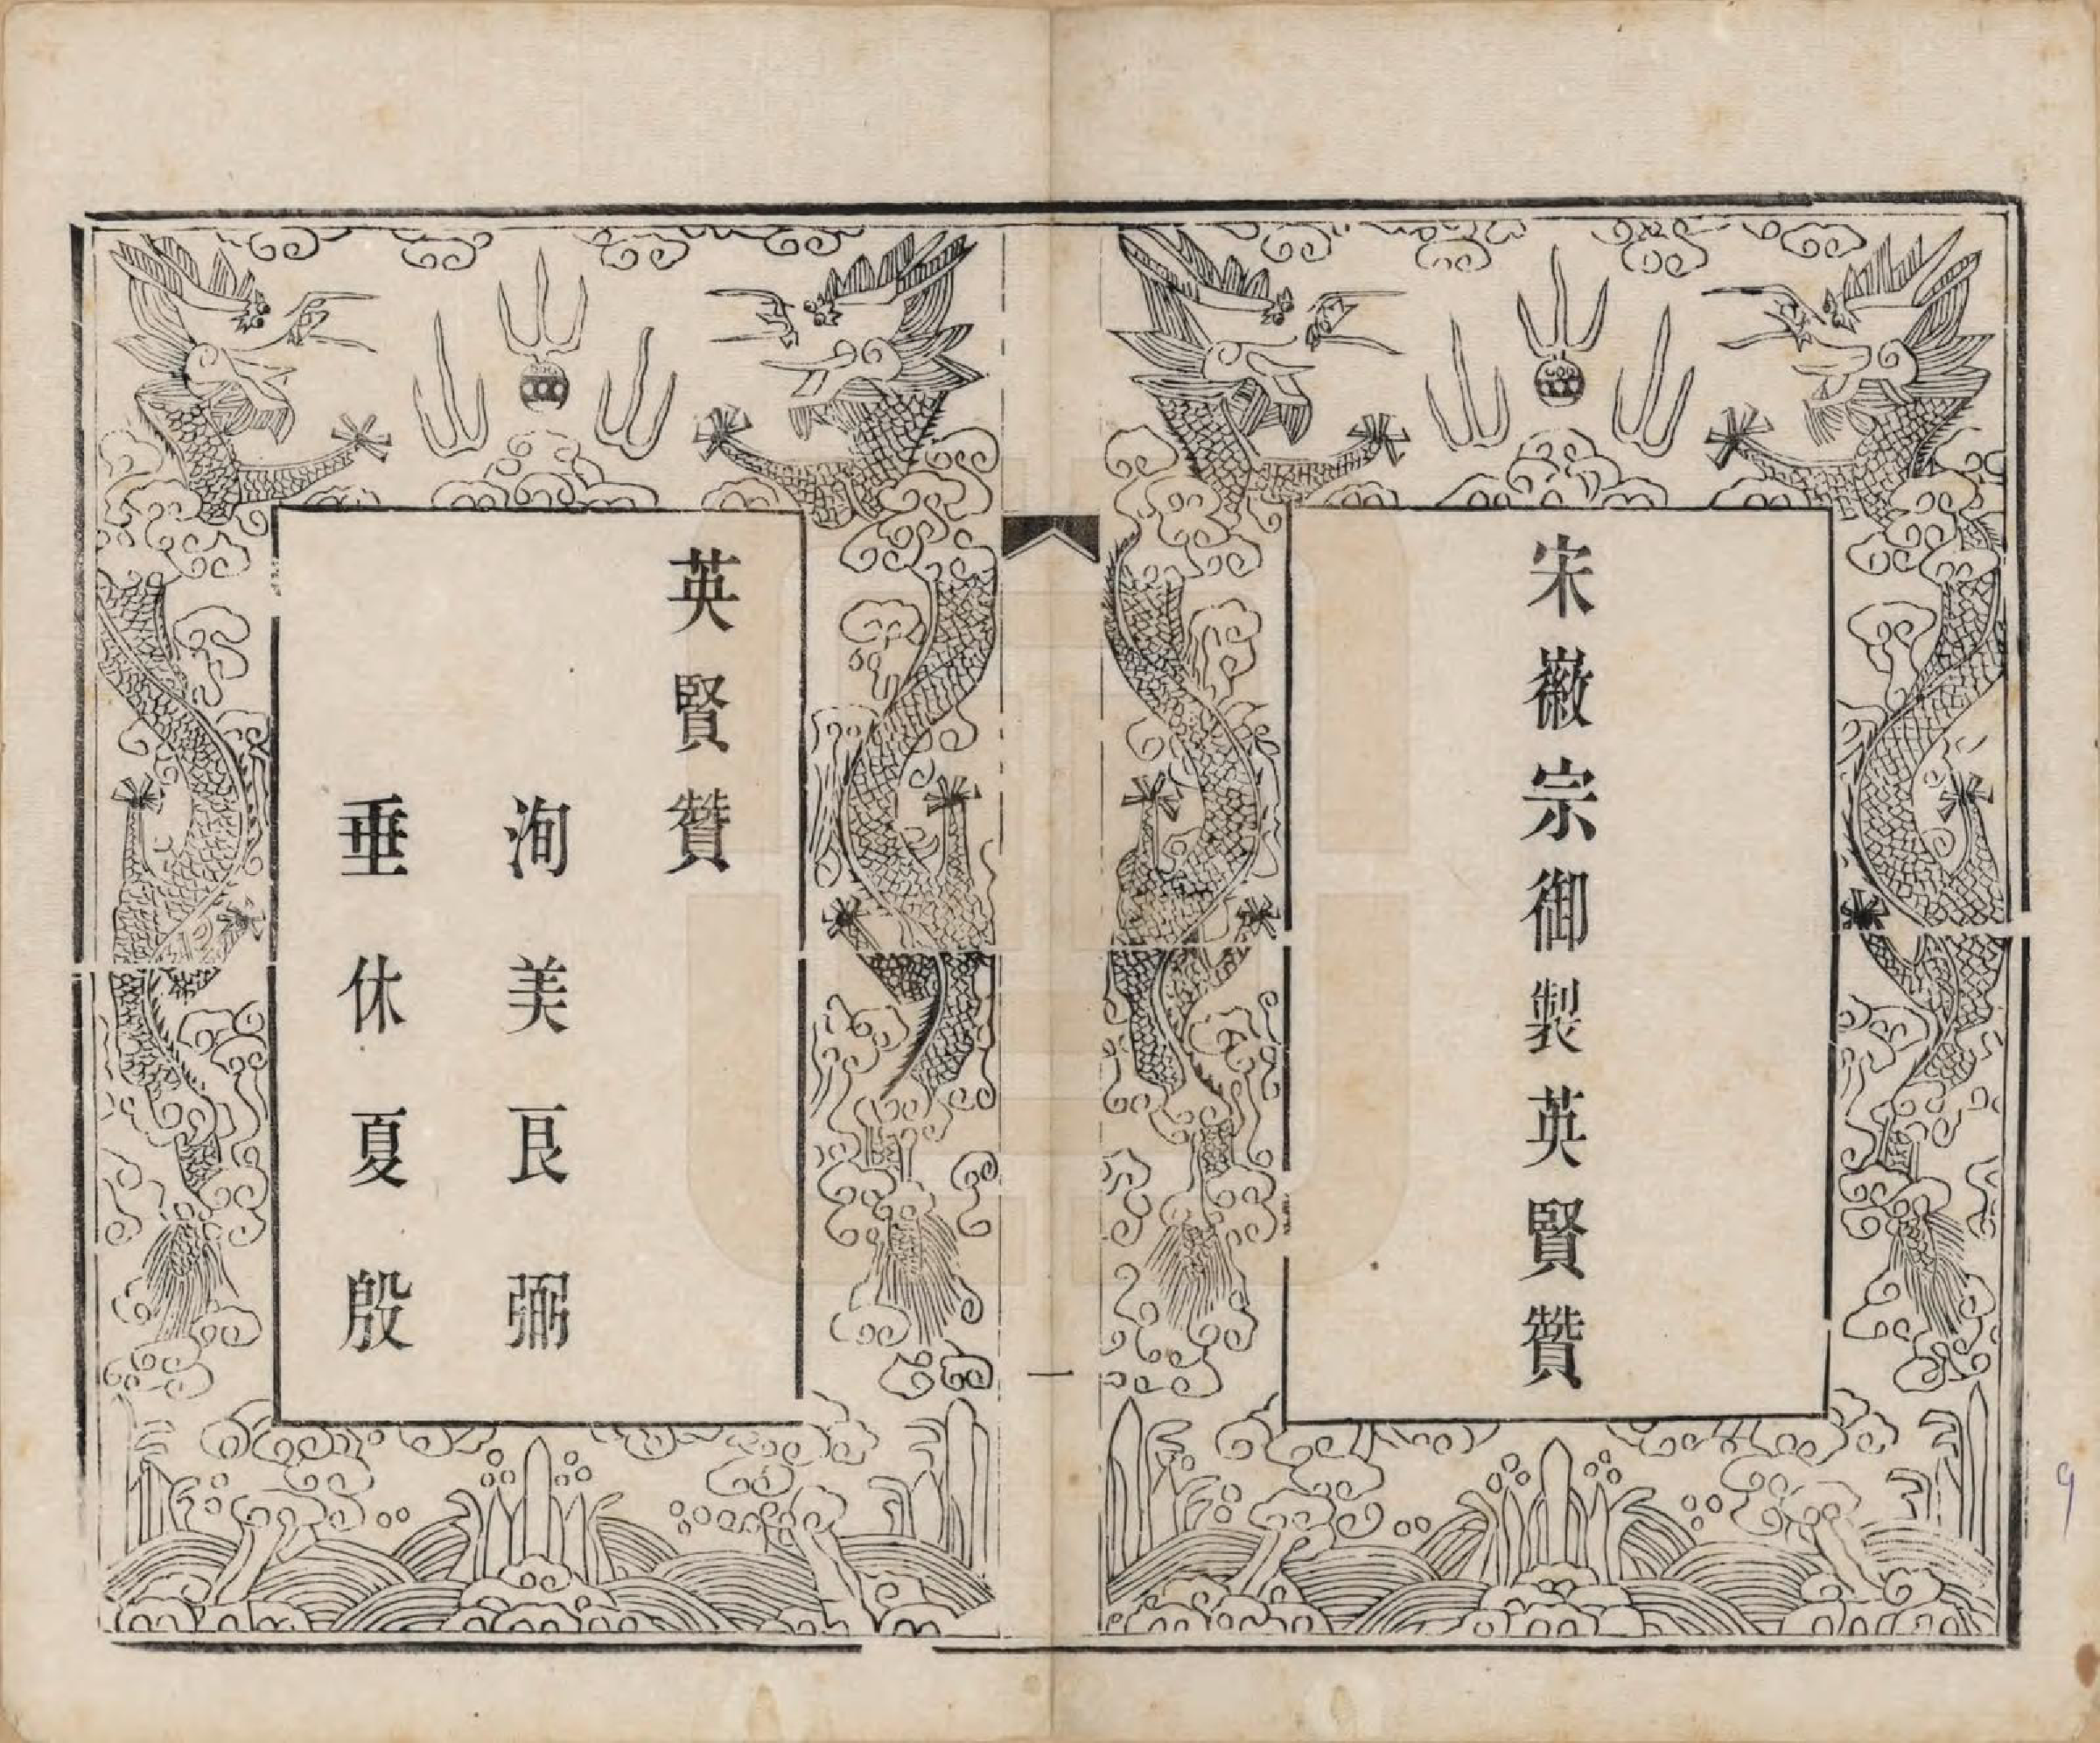 宋徽宗御製英賢贊
一
英賢贊
洵美良弼
垂休夏殷